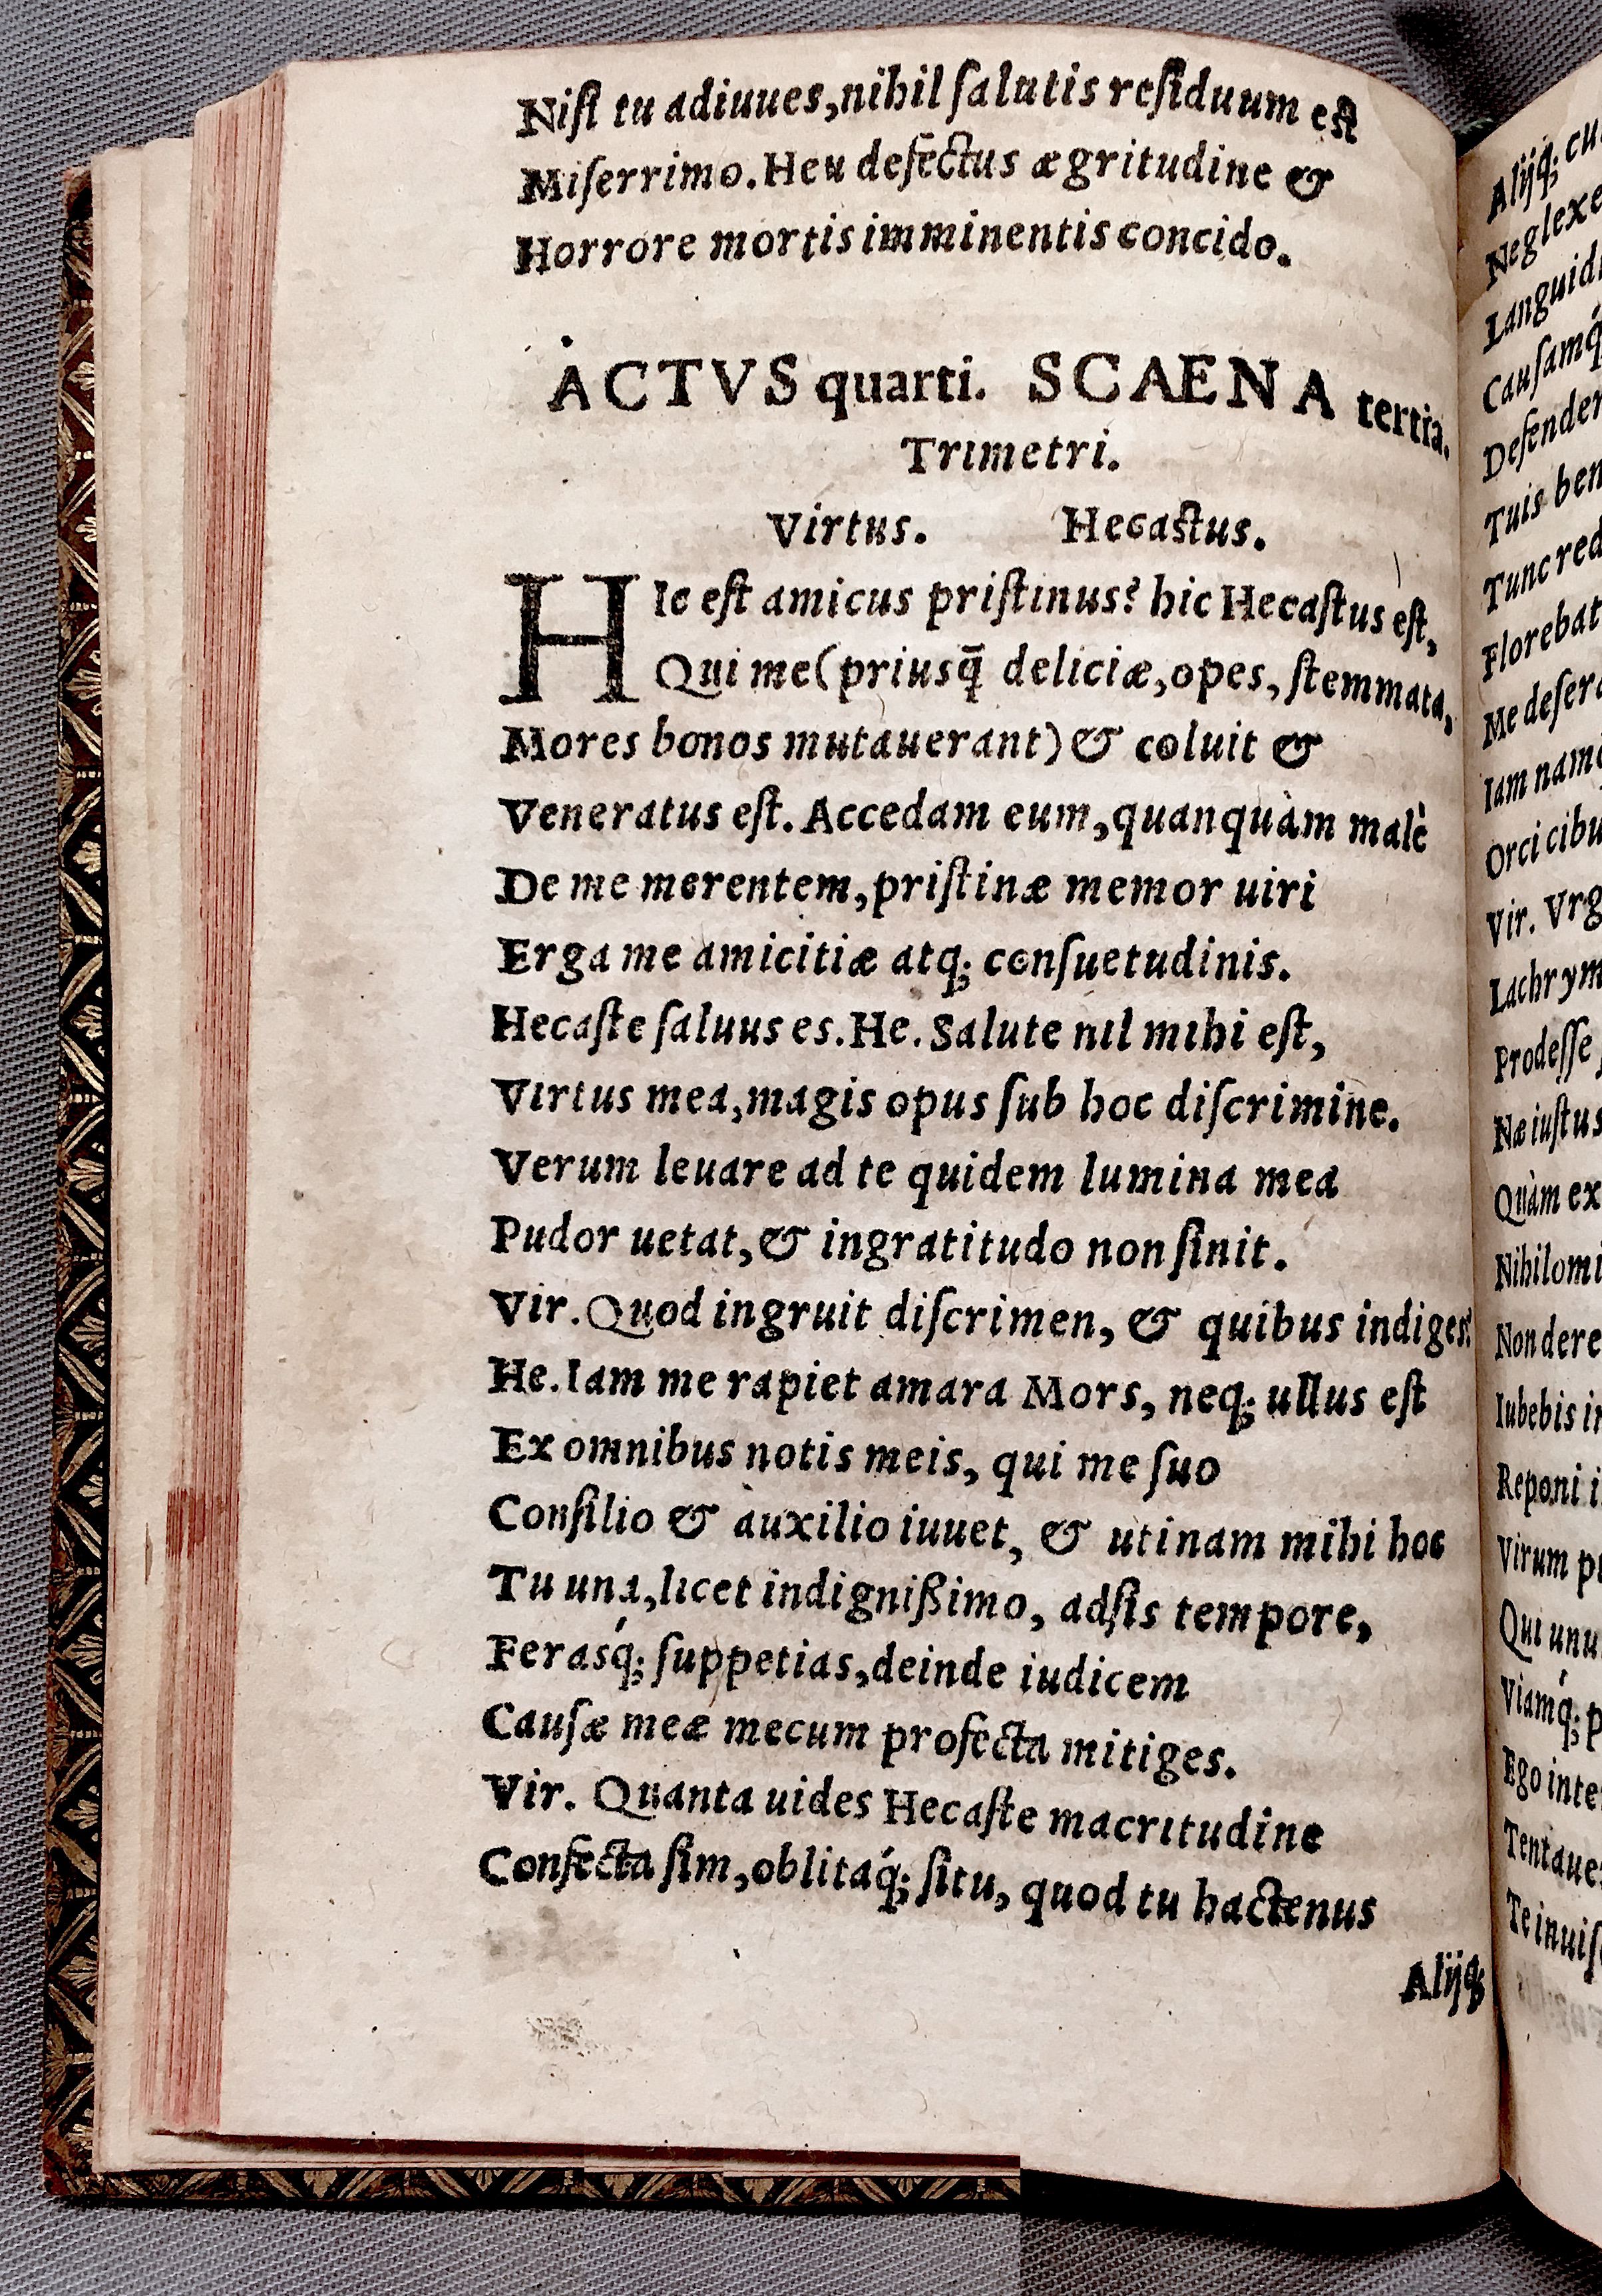 Niſi tu adiuues,nihil ſalutis reſiduum eſt
Miſerrimo.Heu defectus ægritudine &
Horrore mortis imminentis concido.
ACTVS quarti. SCAENA tertia.
Trimetri.
Virtus. Hecaſtus.
HIc eſt amicus priſtinus? hic Hecaſtus eſt,
Qui me(priusq̃ deliciæ,opes, ſtemmata,
Mores bonos mutauerant)& coluit &
Veneratus eſt. Accedam eum,quanquàm malè
De me merentem,priſtinæ memor uiri
Erga me amicitiæ atq; conſuetudinis.
Hecaſte ſaluus es.He. Salute nil mihi eſt,
Virtus mea,magis opus ſub hoc diſcrimine.
Verum leuare ad te quidem lumina mea
Pudor uetat,& ingratitudo non ſinit.
Vir.Quod ingruit diſcrimen, & quibus indiges?
He.Iam me rapiet amara Mors, neq; ullus eſt
Ex omnibus notis meis, qui me ſuo
Conſilio & auxilio iuuet, & utinam mihi hoc
Tu una,licet indignißimo, adſis tempore,
Ferasq́; ſuppetias,deinde iudicem
Cauſæ meæ mecum profecta mitiges.
Vir. Quanta uides Hecaſte macritudine
Confecta ſim,oblitaq́; ſitu, quod tu hactenus
Alijq;
Alijq́; cu
Neglexe
Languid
Cauſamq́
Defender
Tuis ben
Tunc red
Florebat
Me deſer
Iam nam
Orci cibu
Vir. Vrg
Lachrym
Prodeſſe
Næ iuſtus
Quàm ex
Nihilomi
Non dere
Iubebis i
Reponi i
Virum p
Qui unu
Viamq́; p
Ego inte
Tentaue
Te inuiſ